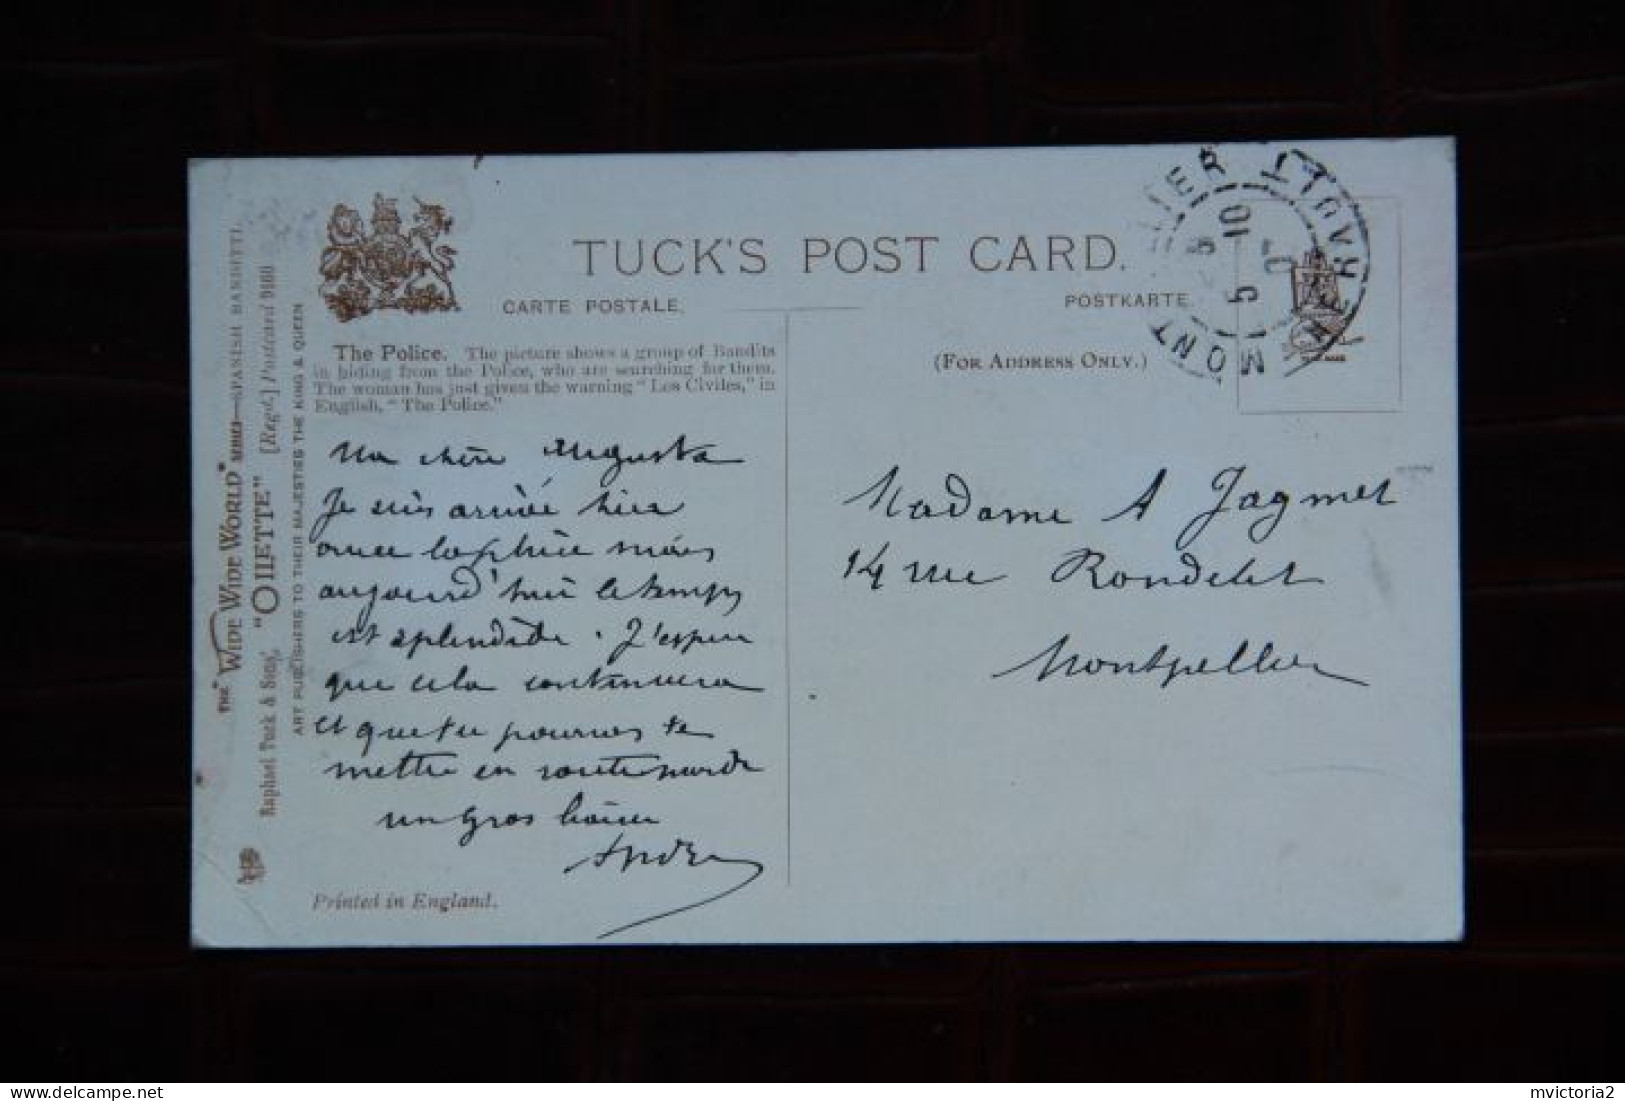 THE "WIDE WIDE WORLD" SERIES—SPANISH BANDITTI.
Raphael Tuck & Sons' "OILETTE" [Regd.] Postcard 9160
ART PUBLISHERS TO THEIR MAJESTIES THE KING & QUEEN
TUCK'S POST CARD.
CARTE POSTALE.
POSTKARTE
(FOR ADDRESS ONLY.)
MONT LIER HERAULT
10
5
The Police. The picture shows a group of Bandits
in hiding from the Police, who are searching for them.
The woman has just given the warning "Los Civiles," in
English, "The Police."
Ma chère Augusta
Je suis arrivée hier
avec la pluie mais
aujourd'hui le temps
est splendide. J'espère
que cela continuera
et que tu pourras te
mettre en route mardi
un gros baiser
Madame A Jagmet
14 rue Rondelet
Montpellier
Printed in England.
delcampe.net
mvictoria2